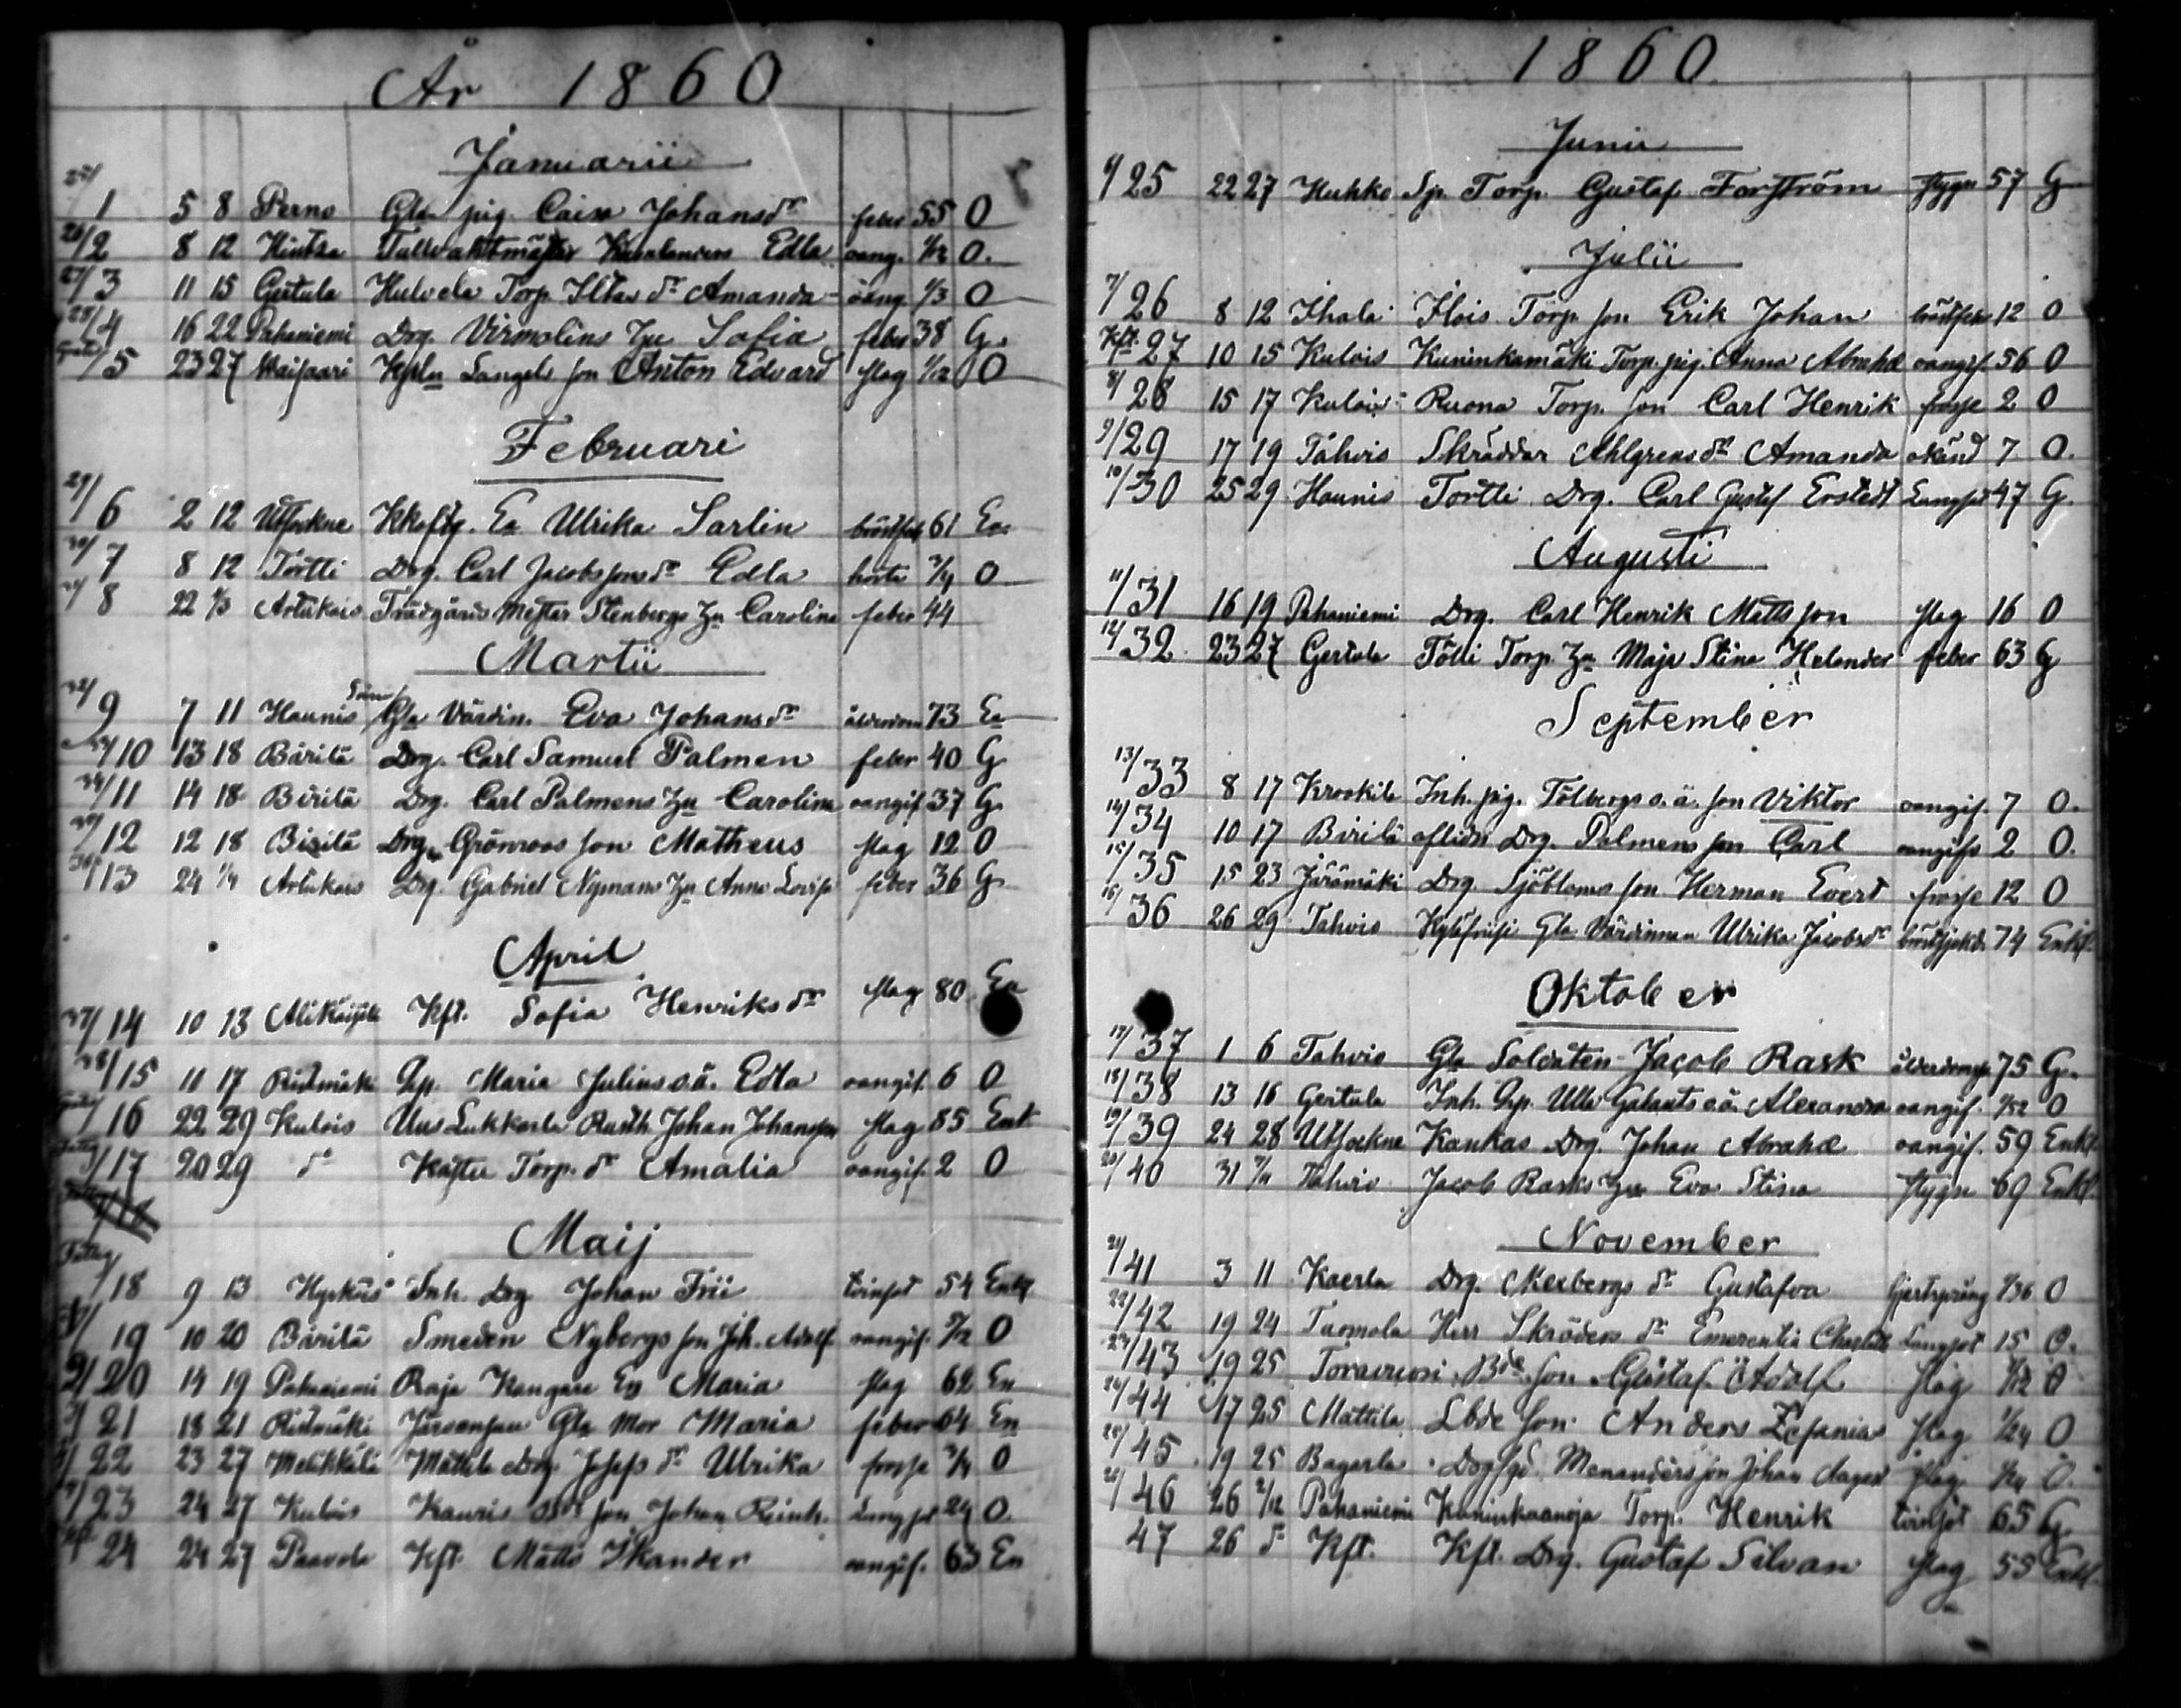 År 1860
Januarii
25/1 5 8 Perno Gla pig. Caisa Johansdr feber 55 O
26/2 8 12 Hintsa Tullvaktmästar Edla oang. O.
27/3 11 15 Gertula Huhvela Torp. dr Amanda oang. 1/3 O
28/4 16 22 Pahaniemi Drg. Virmolins hu Sofia feber 38 G.
/5 23 27 Langels son Anton Edvard slag 1/12 O
Februari
29/6 2 12 Utsockne Ea Ulrika Sarlin bröstfeb 61 Ea
30/7 8 12 Törtti Drg. Carl Jacobssons dr Edla hosta 3/4 O
31/8 22 1/3 Artukais Trädgårds Mästar Stenbergs hu Carolina feber 44
Martii
32/9 7 11 Haunis Gla Värdin. Eva Johansdr ålderdom 73 Ea
/10 13 18 Bärilä Drg. Carl Samuel Palmen feber 40 G.
34/11 14 18 Birilä Drg. Carl Palmens hu Carolina oangif. 37 G.
35/12 12 18 Birilä Drg. Grönroos son Mattheus slag 12 O
36/13 24 1/4 Artukais Drg. Gabriel Nymans hu Anna Lovisa feber 36 G.
April
37/14 10 13 Kft. Sofia Henriksdr slag 80 Ea
38/15 11 17 Ristmäki Qp. Maria Julins o.ä. Edla oangif. 6 O
/16 22 29 Kulois Uus Lukkarla Johan Johansson slag 85 Enk
/17 20 29 dr Torp. dr Amalia oangif. 2 O
/18
Maij
/18 9 13 Hyrköis Inh. Drg Johan Frii tvinsot 54 Enkl
1/19 10 20 Bärilä Smeden Nybergs son Joh. Adolf oangif. O
2/20 14 19 Pahaniemi Raja Kangare Ea Maria slag 62 En
3/21 18 21 Ristmäki Gla Mor Maria feber 64 En
/22 23 27 Mälikkälä Mattila Drg. Josefs dr Ulrika frossa 3/4 O
5/23 24 27 Kulois Kauris son Johan Reinh. Lungsot 24 O.
24 24 27 Paavola Kft. Matts Ikander oangif. 63 En
1860
Junii
6/25 22 27 Huhko Torp. Gustaf Forsström stygn 57 G
Julii
7/26 8 12 Ihala Ilois Torp. son Erik Johan bröstfeb 12 O
Kft. 27 10 15 Kulois Kuninkamäki Torp. pig. Anna Abrahd oangif. 56 O
8/28 15 17 Kulois Ruona Torp. son Carl Henrik frossa 2 O
9/29 17 19 Tahvis Skräddar Ahlgrens dr Amanda okänd 7 O.
10/30 25 29 Haunis Törtti Drg. Carl Gustaf Erstedt Lungsot 47 G.
Augusti
11/31 16 19 Pahaniemi Drg. Carl Henrik Mattsson slag 16 O
12/32 23 27 Gertula Tölli Torp. hu Maja Stina Helander feber 63 G
September
13/33 8 17 Krookila Inh. pig. Tölbergs o.ä. son Viktor oangif. 7 O.
14/34 10 17 Birilä aflidn Drg. Palmens son Carl oangifs 2 O.
15/35 15 23 Järämäki Drg. Sjöbloms son Herman Evert frossa 12 O
16/36 26 29 Tahvis Gla Värdinnan Ulrika Jacobsdr bröstsjukd. 74 Enkl.
Oktober
17/37 1 6 Tahvis Gla Soldaten Jacob Rask ålderdomssv 75 G.
18/38 13 16 Gertula Inh. Qp. Ulla Galants o.ä. Alexandra oangif. 1/52 O
19/39 24 28 Utsockne Kankas Drg. Johan Abrahd oangif. 59 Enkl.
20/40 31 7/11 Tahvis Jacob Rasks hu Eva Stina stygn 69 Enkl.
November
21/41 3 11 Kaerla Drg. Mexbergs dr Gustafva hjertsprång 1/36 O
22/42 19 24 Tuomola Herr Skröders dr Emerentia Charlotta Lungsot 15 O.
23/43 19 25 Toravuori Bde son Gustaf Adolf slag 1/12 O
24/44 17 25 Mattila Lbde son Anders Zefanias slag 1/24 O
25/45 19 25 Bagarla Menanders son Johan August slag O.
26/46 26 2/12 Pahaniemi Kuninkaanoja Torp. Henrik tvinsot 65 G.
47 26 dr Kft. Kft. Drg. Gustaf Silvan slag 55 Enkl.